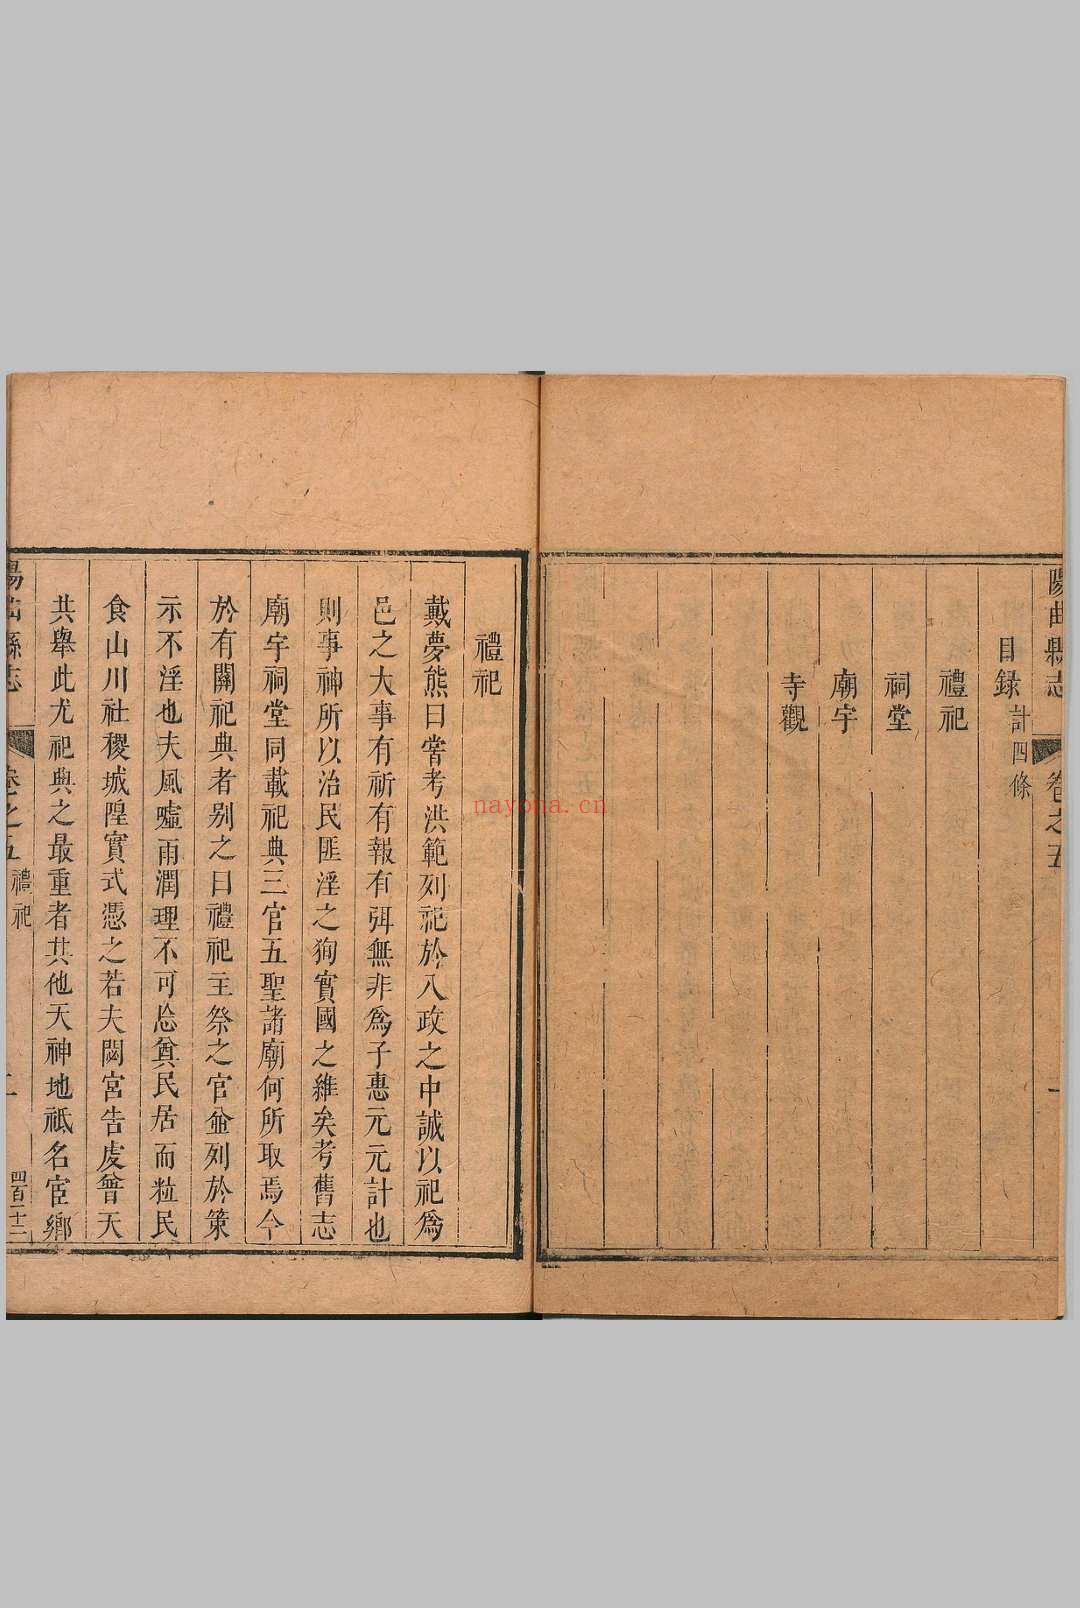 陽曲縣志
卷之五
一
目錄 計四條
禮祀
祠堂
廟宇
寺觀
禮祀
戴夢熊曰嘗考洪範列祀於八政之中誠以祀爲
邑之大事有祈有報有弭無非爲子惠元元計也
則事神所以治民匪淫之狥實國之維矣考舊志
廟宇祠堂同載祀典三官五聖諸廟何所取焉今
於有關祀典者别之曰禮祀主祭之官並列於策
示不淫也夫風噓雨潤理不可忘奠民居而粒民
食山川社稷城隍實式憑之若夫閟宮告虔曾天
共舉此尤祀典之最重者其他天神地祇名宦鄉
陽曲縣志
卷之五 禮祀
二
四百二十二
nayona.cn